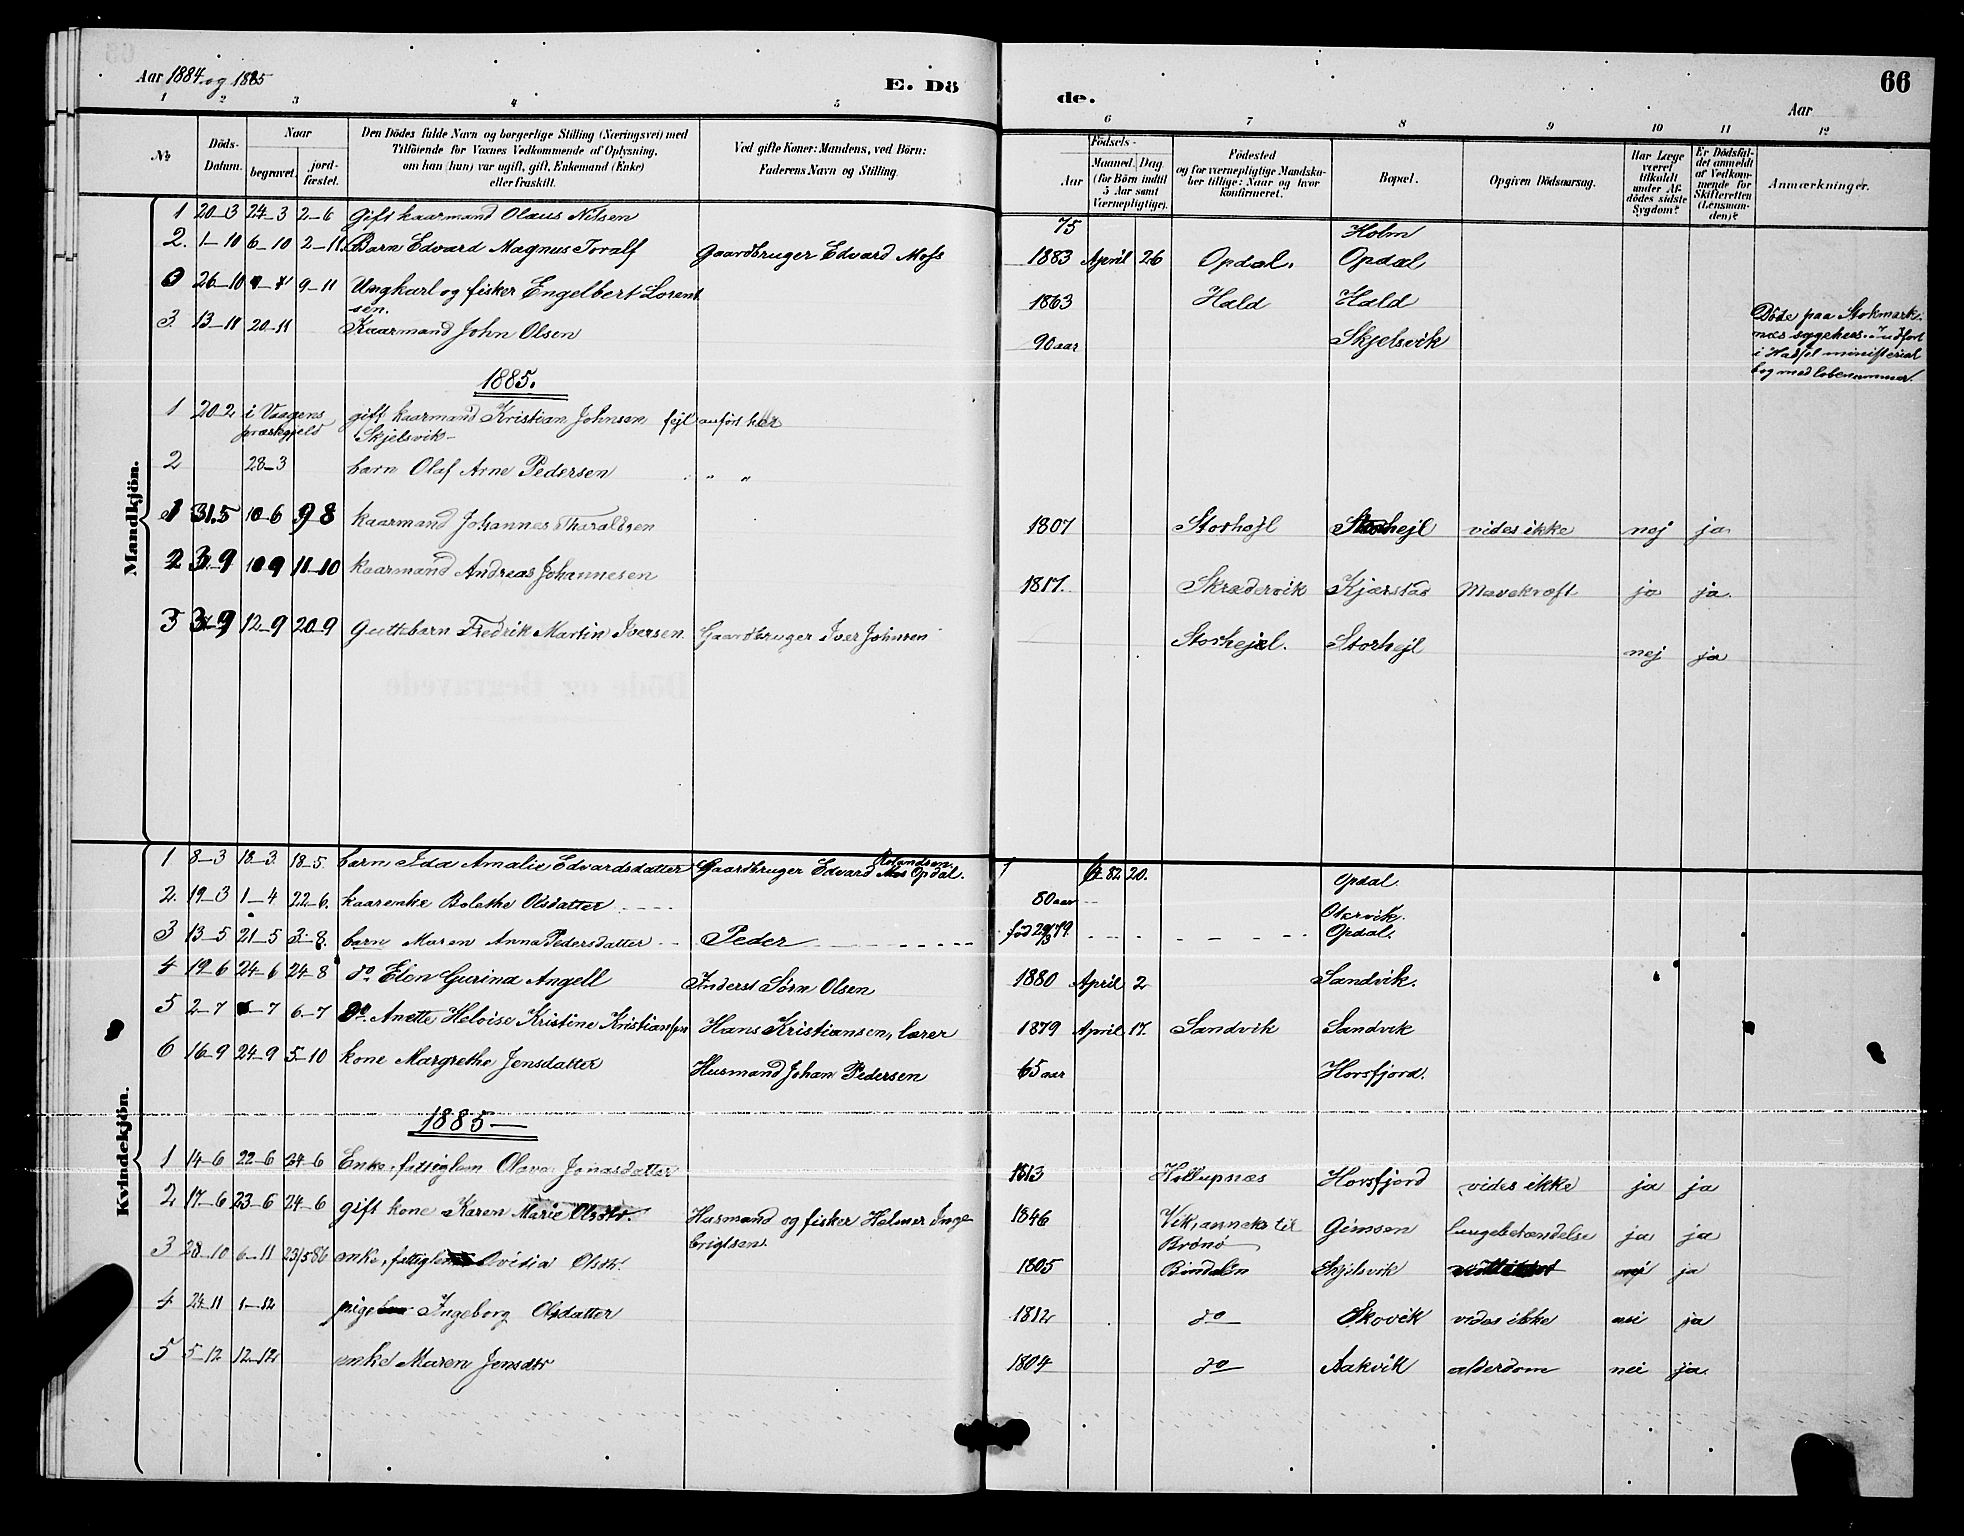 Aar 1884 og 1885
E. Dö
de.
Aar
66
1 2 3 4 5 6 7 8 9 10 11 12
№
Döds-
Datum.
Naar
begravet.
jord-
fæstet.
Den Dödes fulde Navn og borgerlige Stilling (Næringsvei) med
Tilföiende for Voxnes Vedkommende af Oplysning,
om han (hun) var ugift, gift, Enkemand (Enke)
eller fraskilt.
Ved gifte Koner: Mandens, ved Börn:
Faderens Navn og Stilling.
Födsels-
Aar
Maaned. Dag
(for Börn indtil
5 Aar samt
Værnepligtige).
Födested
og for værnepligtige Mandska-
ber tillige: Naar og hvor
konfirmeret.
Bopæl.
Opgiven Dödsaarsag.
Har Læge
været
tilkaldt
under Af-
dödes sidste
Sygdom?
Er Dödsfal-
det anmeldt
af Vedkom-
mende for
Skifteretten
(Lensman-
den)?
Anmærkninger.
Mandkjön.
1 20–3 24–3 2–6 Gift kaarmand Olaus Nilsen 75 Holm
2. 1–10 6–10 2–11 Barn Edvard Magnus Toralf Gaardbruger Edvard Moss 1883 April 26 Opdal. Opdal
26–10 9–11 Ungkarl og fisker Engelbert Lorent
sen. 1863 Hald Hald
3. 13–11 20–11 Kaarmand John Olsen 90 aar Skjelsvik
Döde paa Stokmark-
næs sygehus. indfort
i Hassel ministerial
bog med lobenummer.
1885.
1 20.2 i Vaagens
præstegjeld gift kaarmand Kristian Johnsen fejl anfört her
Skjelsvik–
2 28–3 barn Olaf Arne Pedersen " "
1 31.5 10–6 9–8 kaarmand Johannes Tharaldsen 1807 Storhejl Storhejl vides ikke nej ja
2 3.9 10 9 11–10 kaarmand Andreas Johannesen 1817. Skrædervik Kjærstad Mavekræft ja ja.
3 3–9 12–9 20–9 Guttebarn Fredrik Martin Iversen Gaardbruger Iver Johnsen Storhejel. Storhejl nej ja
Kvindekjön.
1 8–3 18–3. 18–5. barn Ida Amalie Edvardsdatter Gaardbruger Edvard Rolandsen Mos Opdal. 82 20. Opdal.
2. 19–3 1–4 22–6. kaarenke Bolethe Olsdatter 80 aar Otervik.
3 13–5 21–5 3–8. barn Maren Anna Pedersdatter Peder född 29/3 79 Opdal.
4 19–6 24–6 24–8 do Elen Gurina Angell Inderst Sörn Olsen 1880 April 2 Sandvik.
5 2–7 6–7 6–7 do. Anette Heloise Kristine Kristiansen Hans Kristiansen, lærer 1879 April 17. Sandvik Sandvik
6 16–9 24–9 5–10 kone Margrethe Jensdatter Husmand Johan Pedersen 65 aar Horsfjord.
1885–
1 14–6 22–6 24–6 Enke, fattiglem Olava Jonasdatter 1813 Hollupnæs Horsfjord vides ikke ja ja
2 17–6 23–6 24–6 gift kone Karen Marie Olsdtr. Husmand og fisker Helmer Inge
brigtsen. 1846 Vik, anneks til
Brönö Gimsen lungebetændelse ja ja
3 28–10 6–11 23/5 86 enke, fattiglem Ovidia Olsdtr. 1805 Bindalen Skjelsvik nej ja
4 24–11 1–12 pige Ingeborg Olsdatter 1812 do Skovik vides ikke nei ja
5 5–12 12–12 enke Maren Jensdtr 1804 do Aakvik alderdom nei ja.